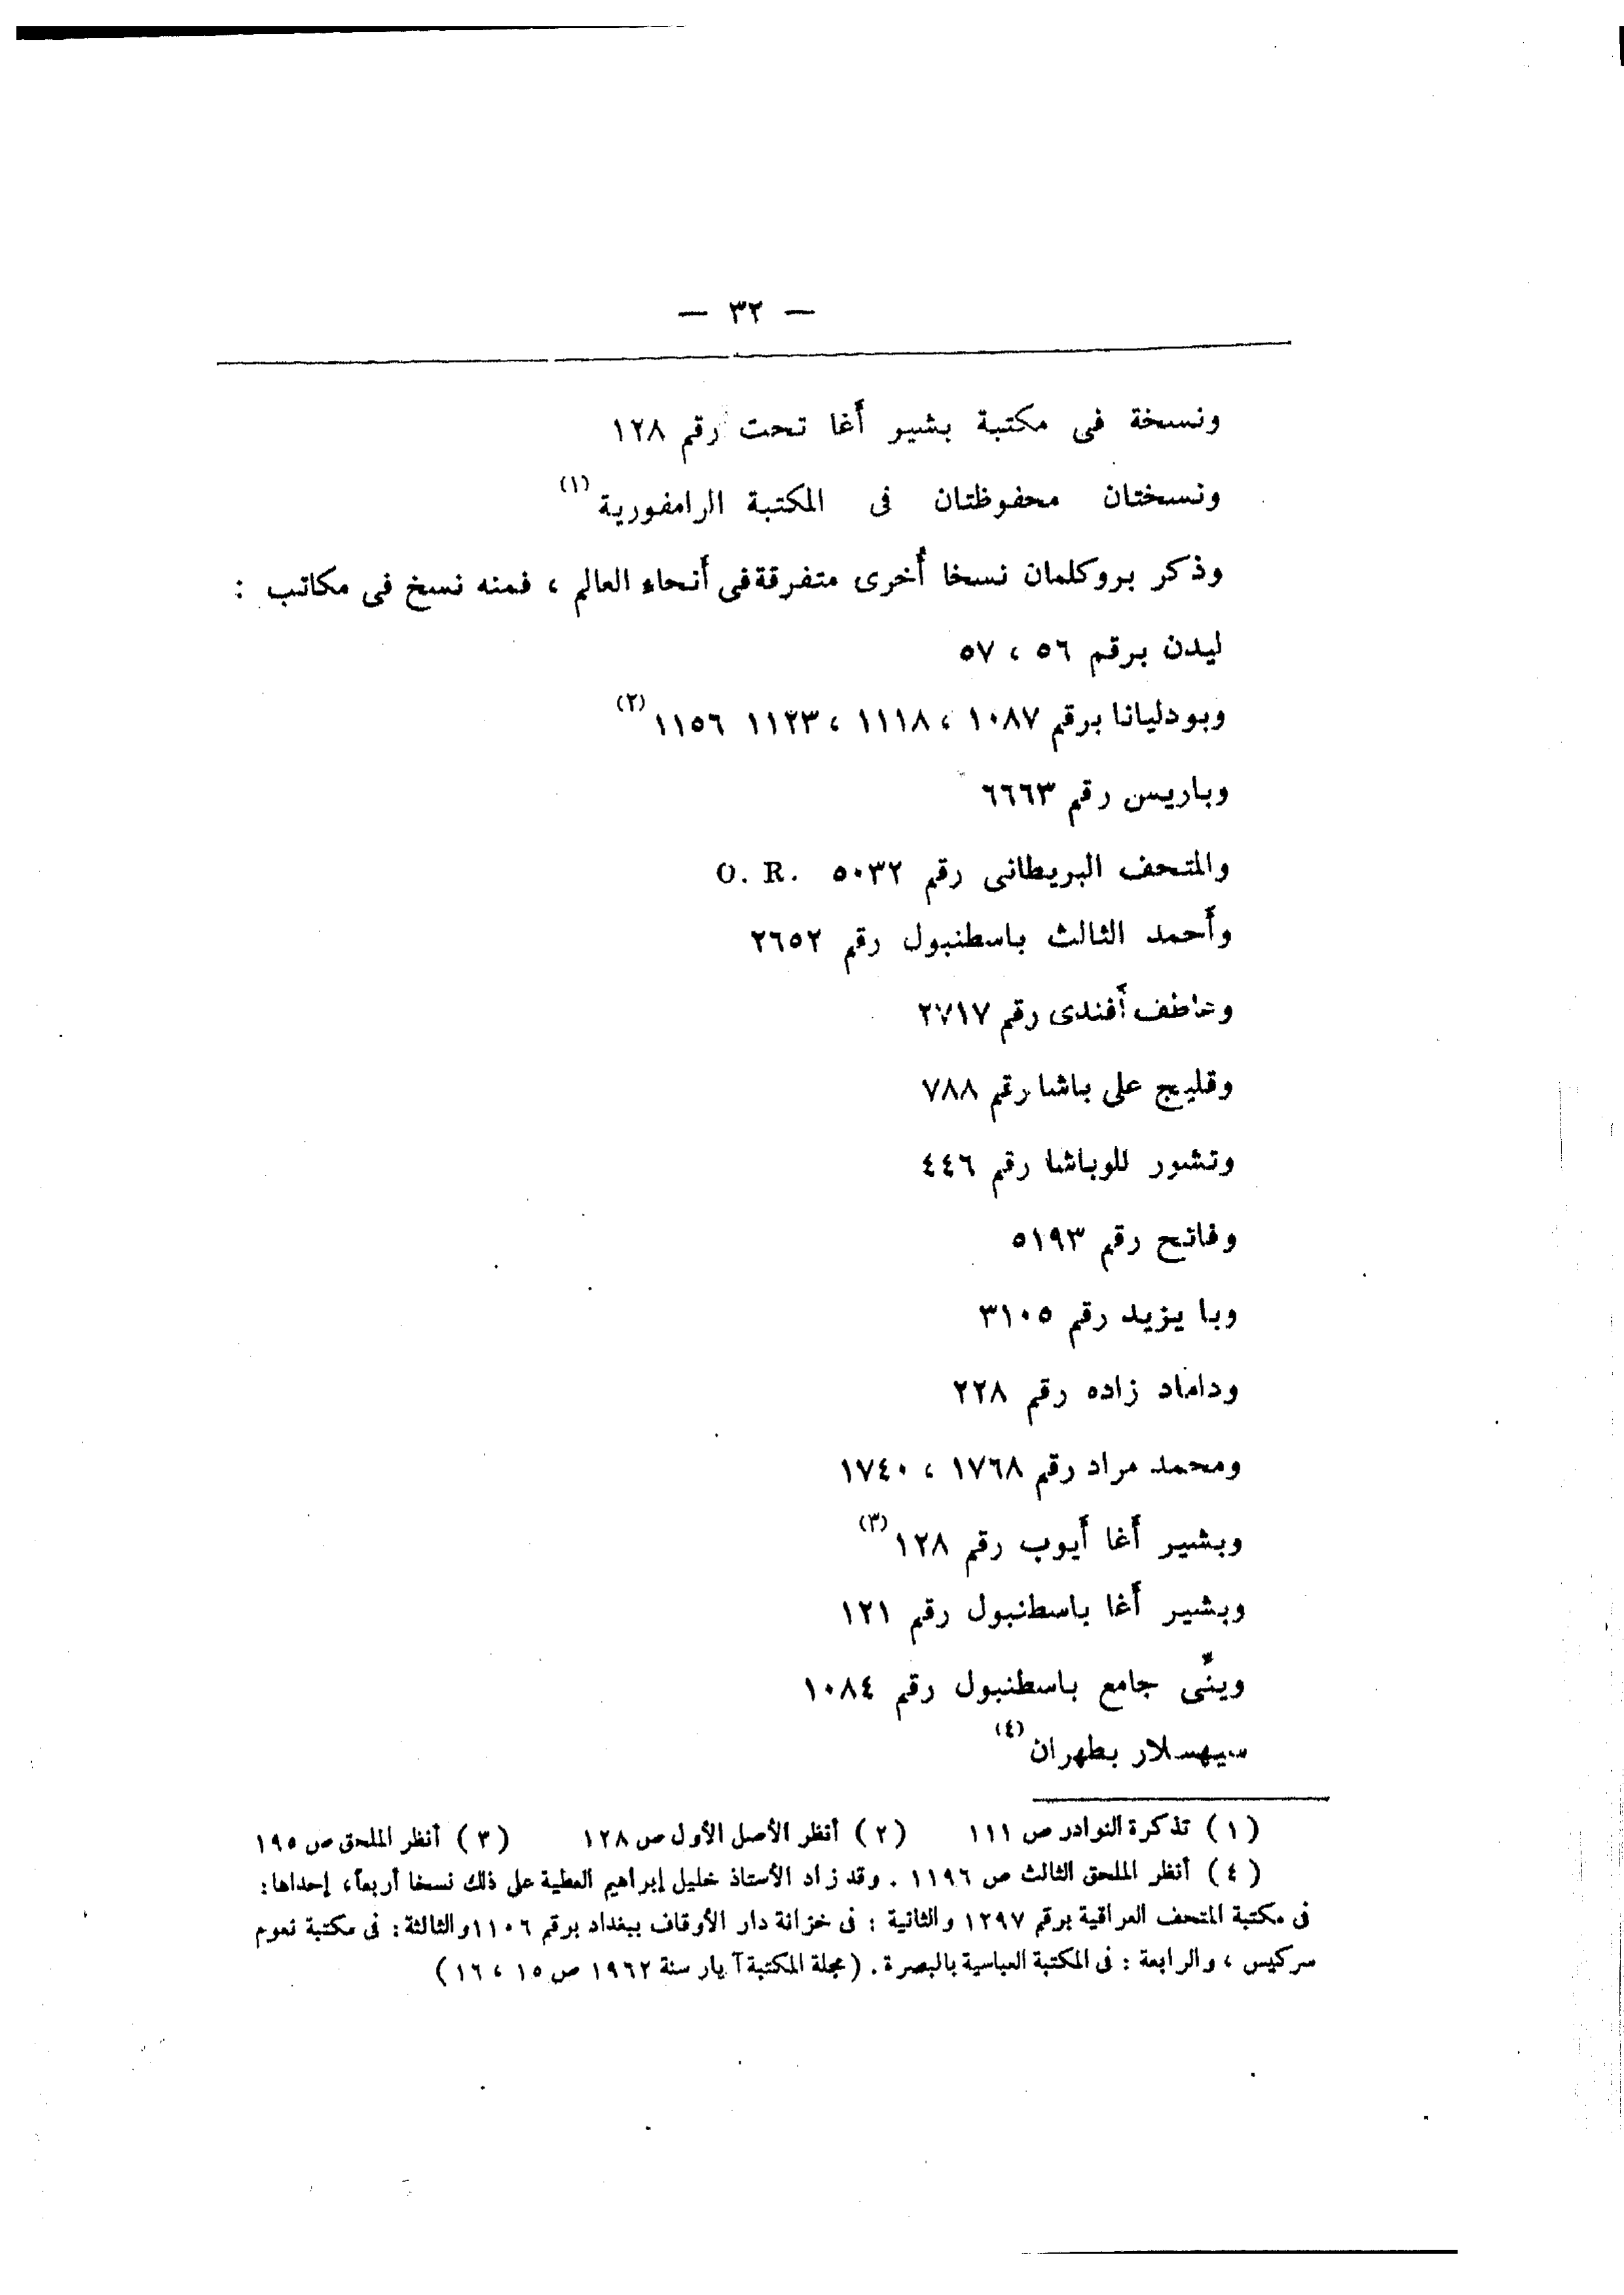 — ٣٢ —
ونسخة فى مكتبة بشير أغا تحت رقم ١٢٨
ونسختان محفوظتان فى المكتبة الرامفورية (١)
وذكر بروكلمان نسخا أخرى متفرقة فى أنحاء العالم ، فمنه نسخ فى مكاتب :
ليدن برقم ٥٦ ، ٥٧
وبودليانا برقم ١٠٨٧ ، ١١١٨ ، ١١٢٣ ١١٥٦ (٢)
وباريس رقم ٦٦٦٣
والمتحف البريطانى رقم ٥٠٣٢ O. R.
وأحمد الثالث باسطنبول رقم ٢٦٥٢
وعاطف أفندى رقم ٢٧١٧
وقليج على باشا رقم ٧٨٨
وتشور للوباشا رقم ٤٤٦
وفاتح رقم ٥١٩٣
وبا يزيد رقم ٣١٠٥
وداماد زاده رقم ٢٢٨
ومحمد مراد رقم ١٧٦٨ ، ١٧٤٠
وبشير أغا أيوب رقم ١٢٨ (٣)
وبشير أغا باسطنبول رقم ١٢١
وينى جامع باسطنبول رقم ١٠٨٤
سيهسلار بطهران (٤)
(١) تذكرة النوادر ص ١١١ (٢) أنظر الأصل الأول ص ١٢٨ (٣) أنظر الملحق ص ١٩٥
(٤) أنظر الملحق الثالث ص ١١٩٦ . وقد زاد الأستاذ خليل إبراهيم العطية على ذلك نسخا أربعاً، إحداها :
فى مكتبة المتحف العراقية برقم ١٢٩٧ والثانية : فى خزانة دار الأوقاف ببغداد برقم ١١٠٦ والثالثة : فى مكتبة نعوم
سركيس ، والرابعة : فى المكتبة العباسية بالبصرة . (مجلة المكتبة آ يار سنة ١٩٦٢ ص ١٥ ، ١٦)